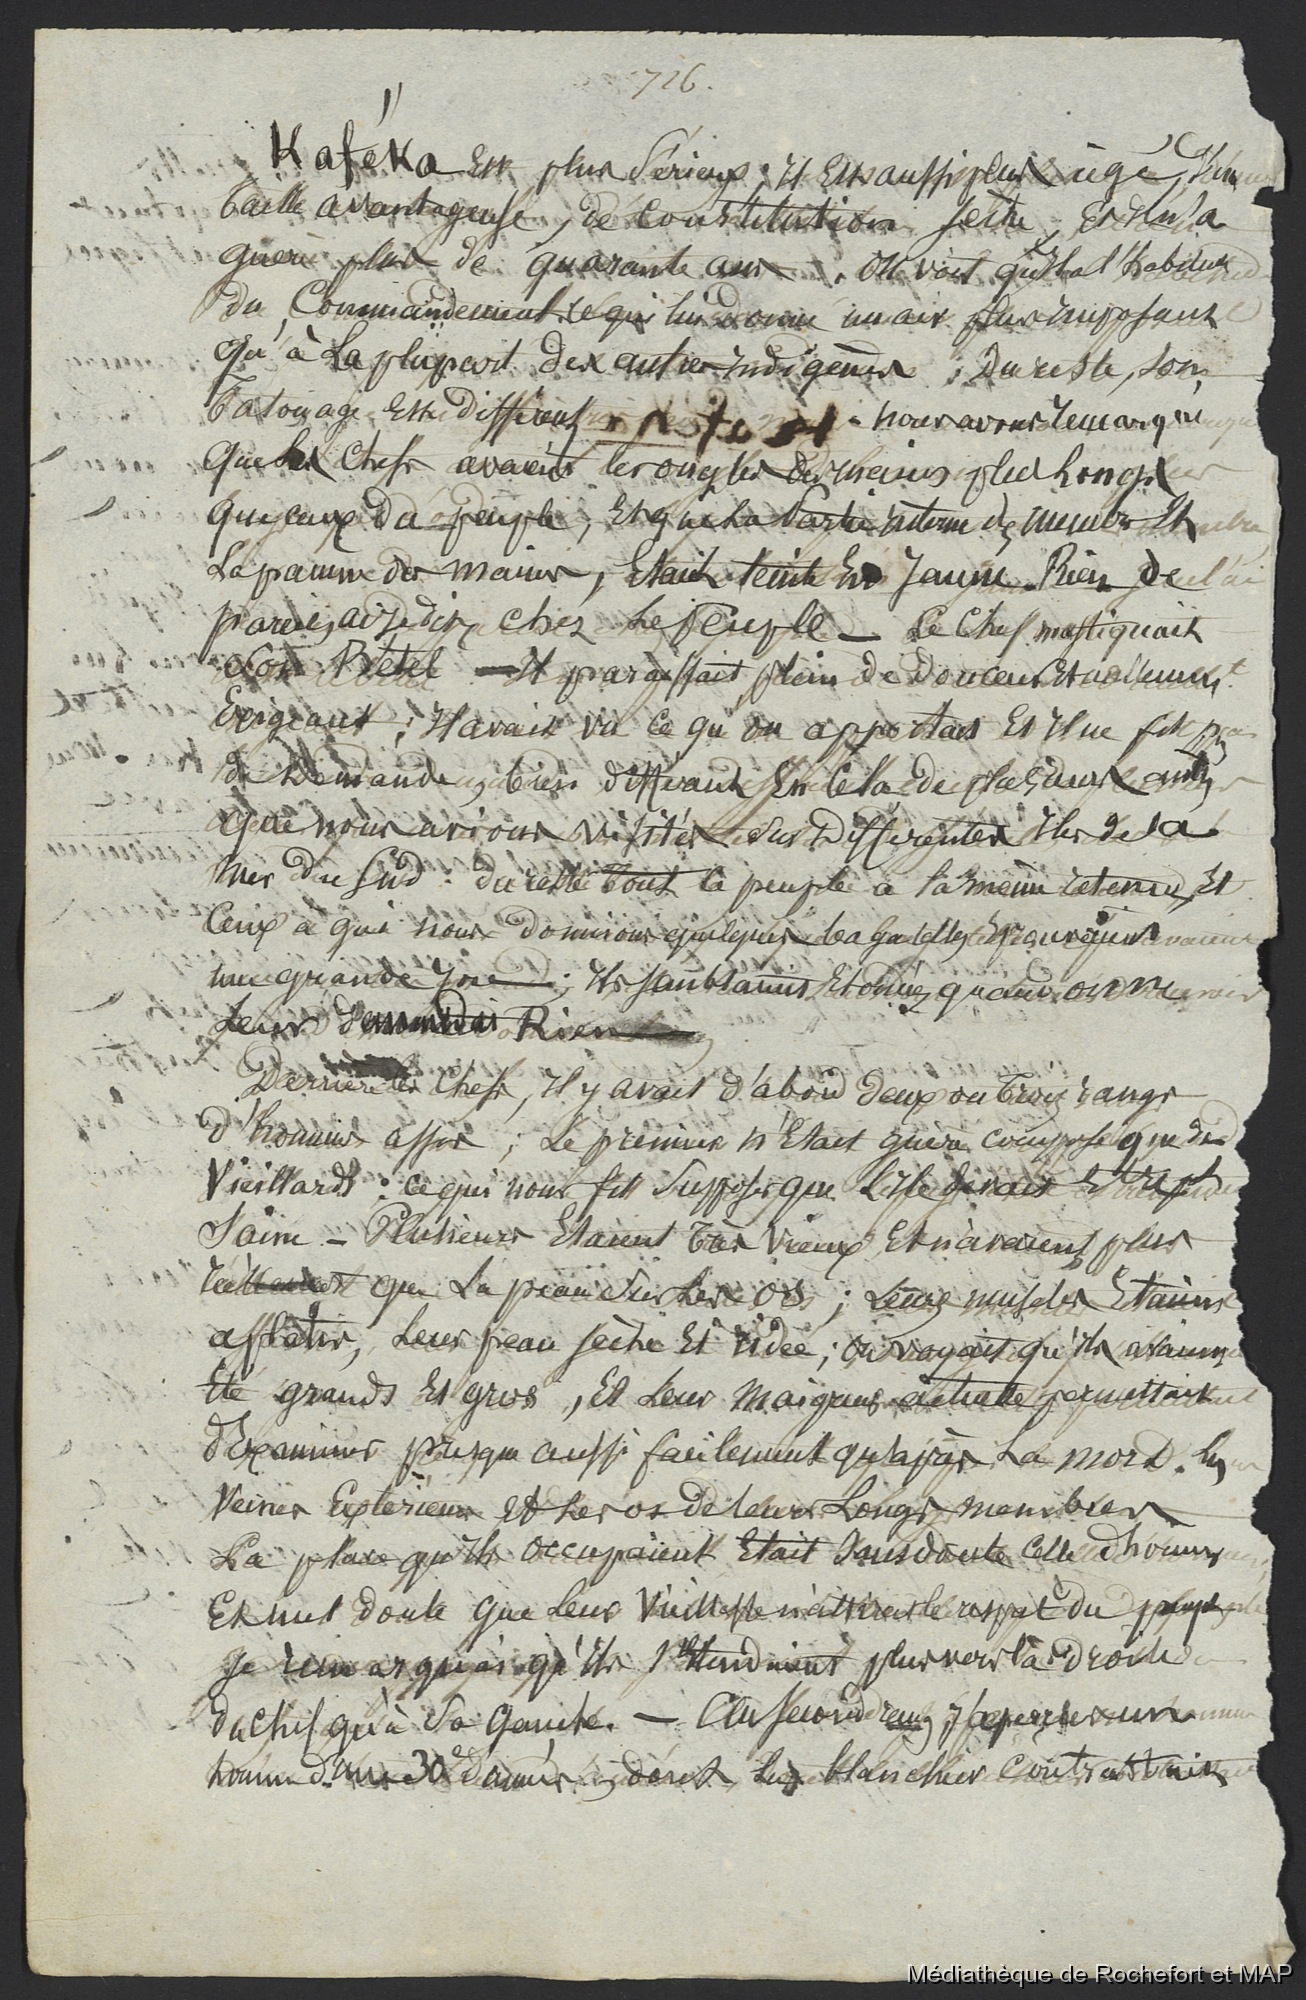 726.
Kaféka Est plus Sérieux ; il Est aussi plus âgé, d'une
taille avantageuse, de Constitution sèche, Et il n'a
guère plus de quarante ans. On voit qu'il a l'habitude
du Commandement, ce qui lui donne un air plus imposant
qu'à la plupart des autres indigènes ; Du reste, son
Tatouage Est différent - nous avons remarqué
que les Chefs avaient les ongles des mains plus longs
que ceux du peuple, Et que la Partie interne des membres Et
La paume des mains, Etait teinte En Jaune. Rien de
pareil chez Le Peuple — Le Chef mastiquait
Son Bétel — Il paraissait plein de Douceur Et nullement
Exigeant ; Il avait vu ce qu'on apportait Et Il ne fit pas
de Demande, bien différent En Cela de plusieurs autres
que nous avions visités sur Différentes Iles de la
Mer Du Sud. Du reste Tout le peuple a la même retenue, Et
Ceux a qui nous donnions quelques bagatelles
une grande Joie ; Ils semblaient Etonnés quand on ne
Leur demandait Rien
Derrière les Chefs, Il y avait d'abord deux ou trois rangs
d'hommes assis ; Le premier n'Etait guère composé que de
Vieillards : ce qui nous fit Supposer que L'île devait Etre
Saine — Plusieurs Etaient très Vieux, Et n'avaient plus
que La peau sur Les os ; Leurs muscles Etaient
applatis, Leur peau sèche Et ridée ; on voyait qu'ils avaient
Eté grands Et gros, Et Leur Maigreur actuelle permettait
d'Examiner presque aussi facilement qu'après La mort. Les
Veines Extérieures Et Les os de leurs Longs membres
La place qu'ils occupaient Etait Sans doute Celle d'honneur
Et nul doute que Leur Vieillesse n'attirait le respect du peuple
Je remarquai qu'ils s'Etendaient plus vers la droite
du Chef qu'à Sa Gauche. — Au Second rang, J'aperçus un
homme d'une 30e d'années, dont La blancheur Contrastait
Médiathèque de Rochefort et MAP